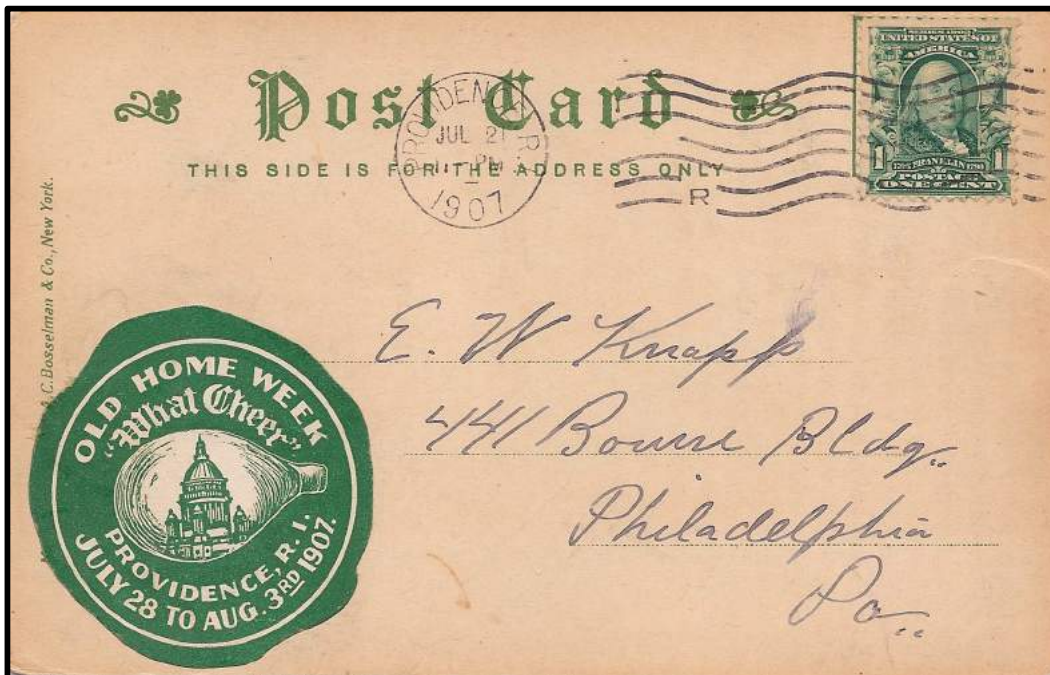 Post Card
THIS SIDE IS FOR THE ADDRESS ONLY
PROVIDENCE, R.
JUL 21
PM
1907
R
SERIES 1902
UNITED STATES OF
AMERICA
1 FRANKLIN 1
POSTAGE
ONE CENT
A.C. Bosselman & Co., New York.
E. W Knapp
441 Bourse Bldg.
Philadelphia
Pa.
OLD HOME WEEK
"What Cheer"
PROVIDENCE, R. I.
JULY 28 TO AUG. 3RD 1907.